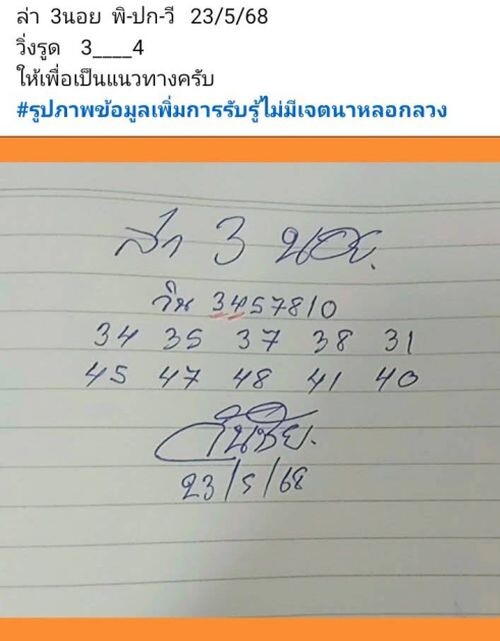 ล่า 3นอย พิ-ปก-วี 23/5/68
วิ่งรูด 3____4
ให้เพื่อเป็นแนวทางครับ
#รูปภาพข้อมูลเพิ่มการรับรู้ไม่มีเจตนาหลอกลวง
ล่า 3 นอย.
วิน 3457810
34 35 37 38 31
45 47 48 41 40
23/5/68